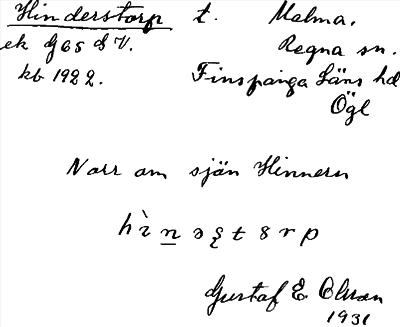 Hinderstorp t. Malma.
ek G65 SV. Regna sn.
kb 1922. Finspånga Läns hd
Ögl
Norr om sjön Hinnern
Gustaf E. Olsson
1931